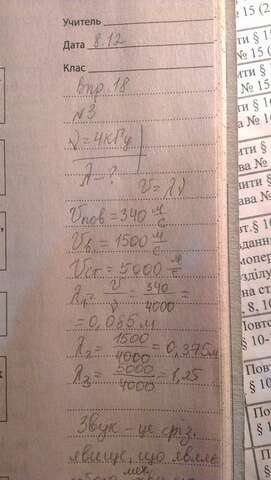 Учитель
Дата 8.12
Клас
Впр. 18
№3
ν = 4 кГц
λ - ?
υ = λν
υпов = 340 м/с
υв = 1500 м/с
υст = 5000 м/с
λ1 = υ/ν = 340/4000 =
= 0,085 м
λ2 = 1500/4000 = 0,375м
λ3 = 5000/4000 = 1,25
Звук - це фіз.
явище, що являє
мех.
№ 15 (2
ити §
№ 15 (
ити §
№ 15
ити §
ва №
ити §
ава №
вт.§ 1
вданн
мопер
зділу
на ст
, 8, 10
Повт
§ 10-
Повт
§ 10
Повт
§ 1
Пов
§ 1